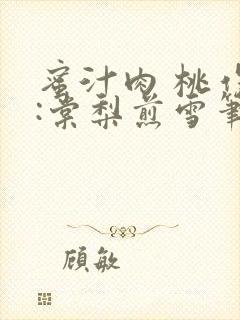 蜜汁肉桃作
:棠梨煎雪筆
顾敏